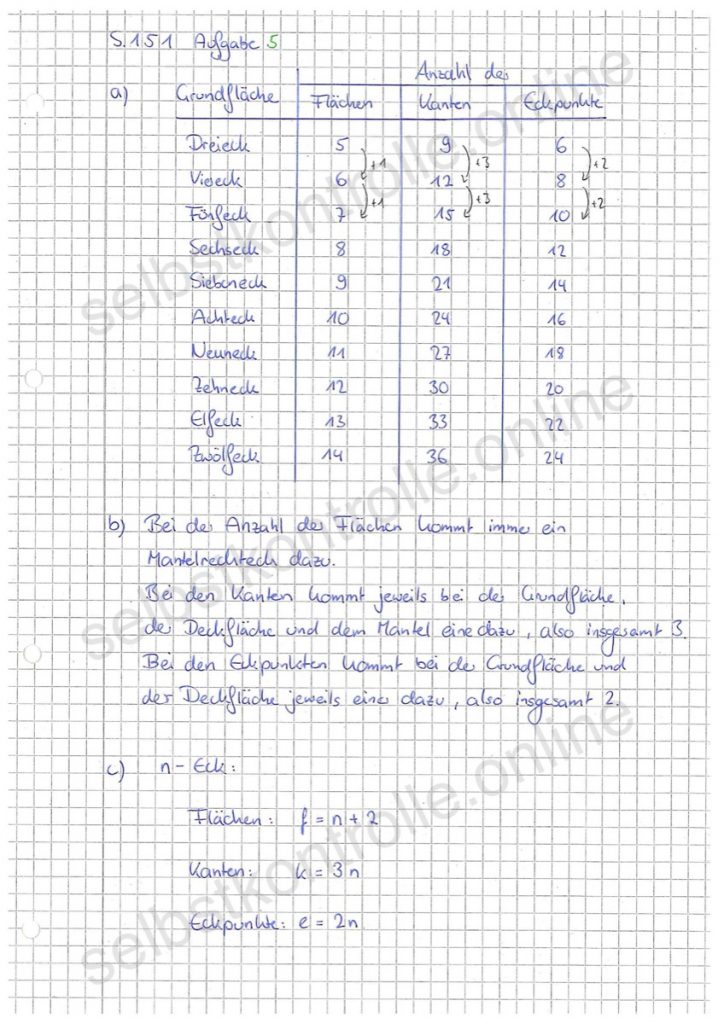 S.151 Aufgabe 5
Anzahl der
a) Grundfläche Flächen Kanten Eckpunkte
Dreieck 5 9 6
+1 +3 +2
Viereck 6 12 8
+1 +3 +2
Fünfeck 7 15 10
Sechseck 8 18 12
Siebeneck 9 21 14
Achteck 10 24 16
Neuneck 11 27 18
Zehneck 12 30 20
Elfeck 13 33 22
Zwölfeck 14 36 24
b) Bei der Anzahl der Flächen kommt immer ein
Mantelrechteck dazu.
Bei den Kanten kommt jeweils bei der Grundfläche,
der Deckfläche und dem Mantel eine dazu, also insgesamt 3.
Bei den Eckpunkten kommt bei der Grundfläche und
der Deckfläche jeweils einer dazu, also insgesamt 2.
c) n-Eck:
Flächen: f = n + 2
Kanten: k = 3n
Eckpunkte: e = 2n
selbstkontrolle.online
selbstkontrolle.online
selbstkontrolle.online